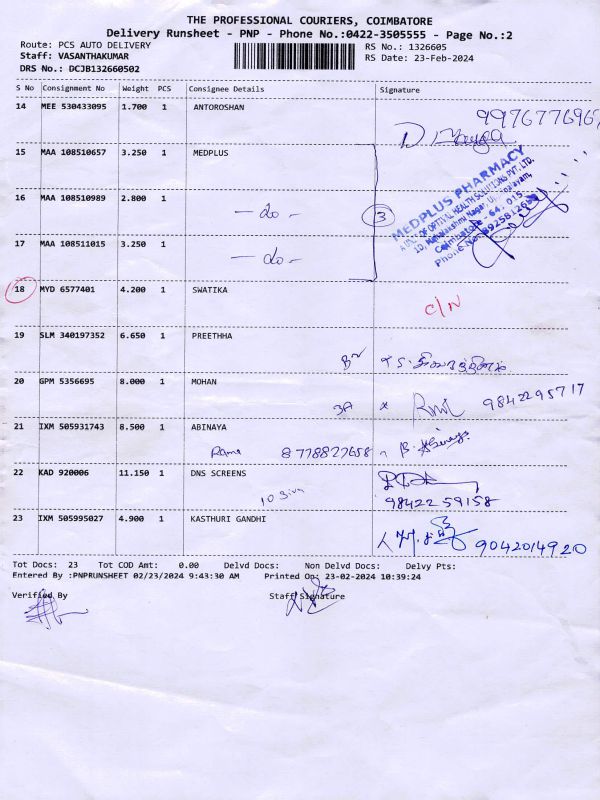 THE PROFESSIONAL COURIERS, COIMBATORE
Delivery Runsheet - PNP - Phone No.:0422-3505555 - Page No.:2
Route: PCS AUTO DELIVERY
RS No.: 1326605
Staff: VASANTHAKUMAR
RS Date: 23-Feb-2024
DRS No.: DCJB132660502
S No Consignment No Weight PCS Consignee Details Signature
14 MEE 530433095 1.700 1 ANTOROSHAN
9976776967
15 MAA 108510657 3.250 1 MEDPLUS
MEDPLUS PHARMACY
16 MAA 108510989 2.800 1
- do - 3
Coimbatore - 64
17 MAA 108511015 3.250 1
- do -
18 MYD 6577401 4.200 1 SWATIKA
C/N
19 SLM 340197352 6.650 1 PREETHHA
20 GPM 5356695 8.000 1 MOHAN
3A x 9842295717
21 IXM 505931743 8.500 1 ABINAYA
Rame 8778827658
22 KAD 920006 11.150 1 DNS SCREENS
98422 59158
23 IXM 505995027 4.900 1 KASTHURI GANDHI
9042014920
Tot Docs: 23 Tot COD Amt: 0.00 Delvd Docs: Non Delvd Docs: Delvy Pts:
Entered By :PNPRUNSHEET 02/23/2024 9:43:30 AM Printed On: 23-02-2024 10:39:24
Verified By Staff Signature